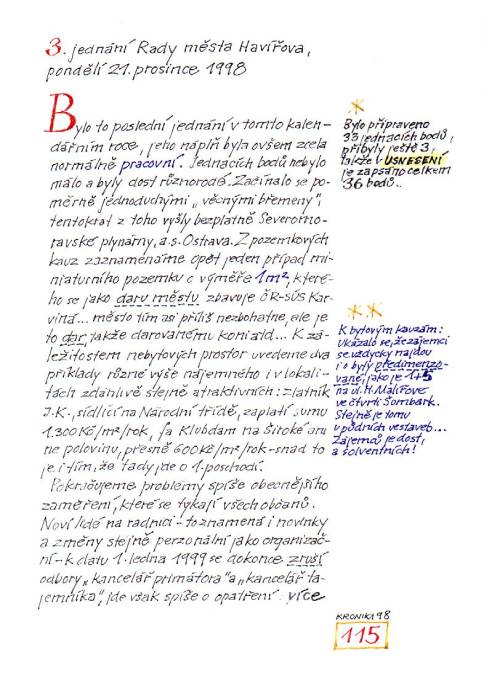 3. jednání Rady města Havířova,
pondělí 21. prosince 1998
Bylo to poslední jednání v tomto kalen-
dářním roce, jeho náplň byla ovšem zcela
normálně pracovní. Jednacích bodů nebylo
málo a byly dost různorodé. Začínalo se po-
měrně jednoduchými „věcnými břemeny",
tentokrát z toho vyšly bezplatně Severomo-
ravské plynárny, a.s. Ostrava. Z pozemkových
kauz zaznamenáme opět jeden případ mi-
niaturního pozemku o výměře 1m², které-
ho se jako daru městu zbavuje ČR-SÚS Kar-
viná... město tím asi příliš nezbohatne, ale je
to dar, takže darovanému koni atd... K zá-
ležitostem nebytových prostor uvedeme dva
příklady různé výše nájemného i v lokali-
tách zdánlivě stejně atraktivních: zlatník
J.K., sídlící na Národní třídě, zaplatí sumu
1.300 Kč/m²/rok, fa Klubdam na Široké jen
polovinu, přesně 600 Kč/m²/rok - snad to
je i tím, že tady jde o 1. poschodí.
Pokračujeme problémy spíše obecnějšího
zaměření, které se týkají všech občanů.
Noví lidé na radnici - to znamená i novinky
a změny stejně perzonální jako organizač-
ní - k datu 1. ledna 1999 se dokonce zruší
odbory „kancelář primátora" a „kancelář ta-
jemníka", jde však spíše o opatření více
Bylo připraveno
33 jednacích bodů,
přibyly ještě 3,
takže v USNESENÍ
je zapsáno celkem
36 bodů..
K bytovým kauzám:
Ukázalo se, že zájemci
se vždycky najdou
i o byty předimenzo-
vané, jako je 1+5
na ul. H. Malířové
ve čtvrti Šumbark.
Stejně je tomu
v půdních vestaveb...
Zájemců je dost,
a solventních!
KRONIKA 98
115